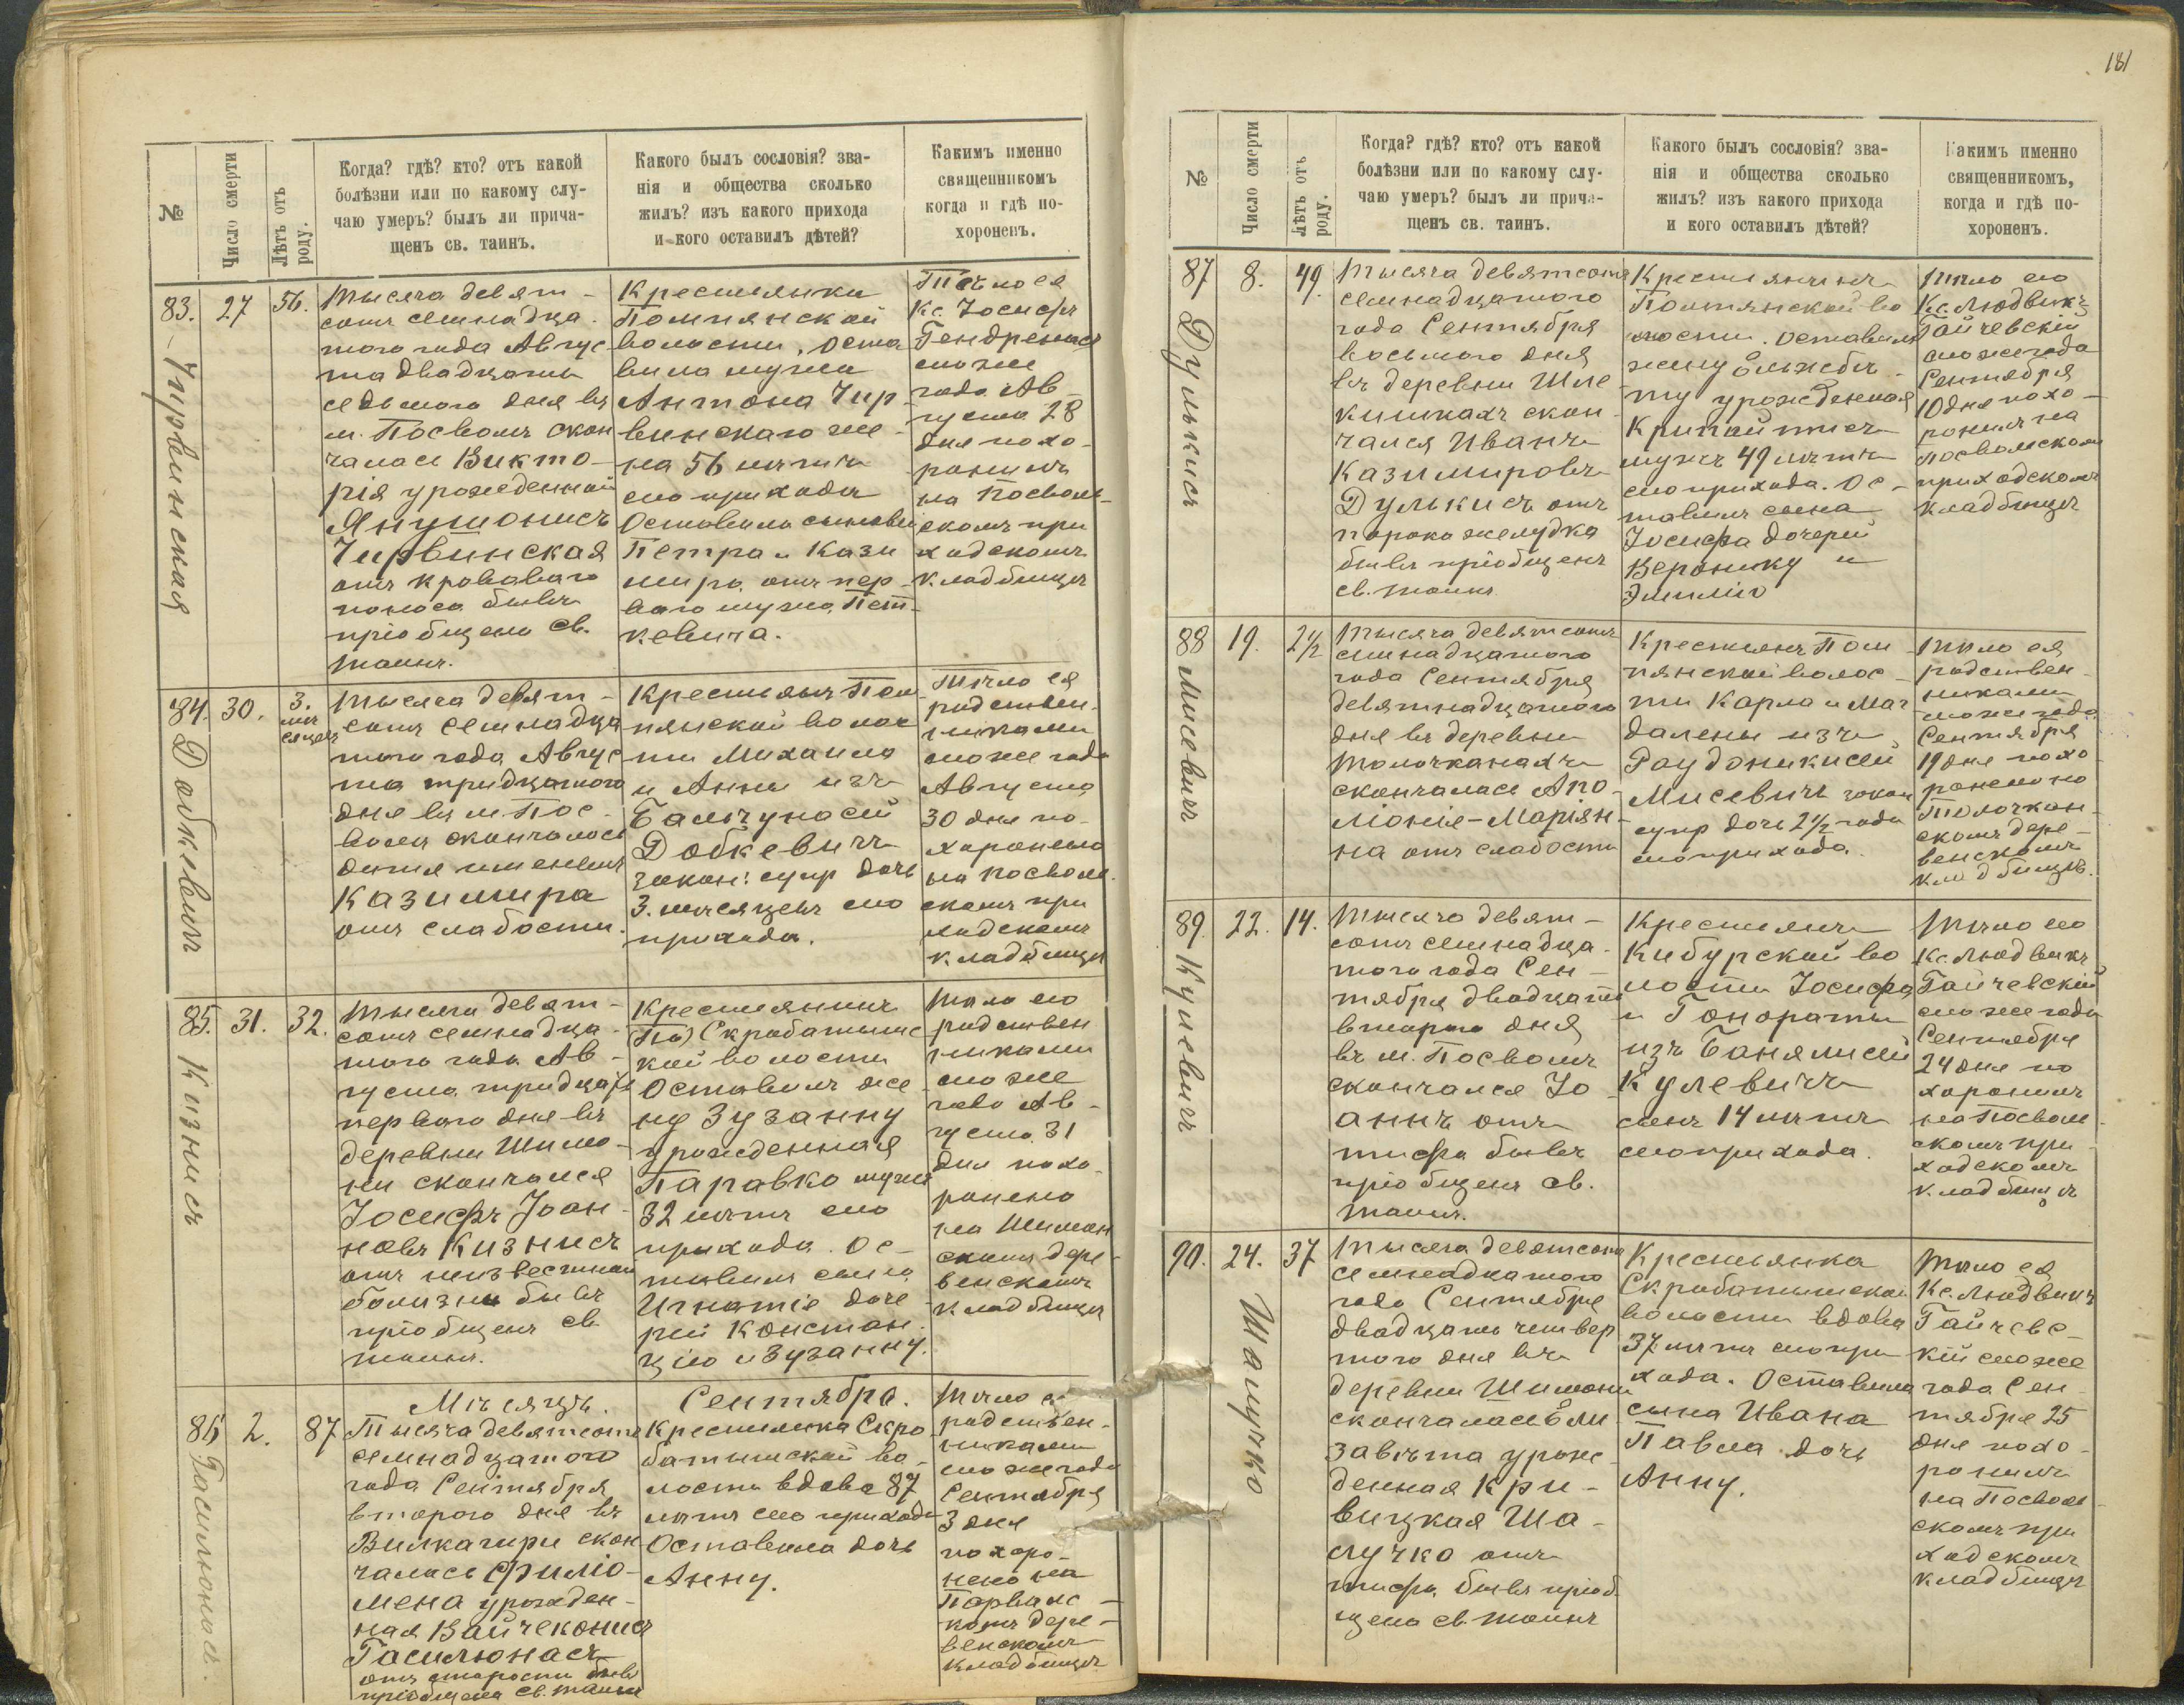 181
№
Число смерти
Лѣтъ отъ роду.
Когда? гдѣ? кто? отъ какой
болѣзни или по какому слу-
чаю умеръ? былъ ли прича-
щенъ св. таинъ.
Какого былъ сословія? зва-
нія и общества сколько
жилъ? изъ какого прихода
и кого оставилъ дѣтей?
Какимъ именно
священникомъ
когда и гдѣ по-
хороненъ.
83.
Чирвинская
27
56.
Тысяча девят-
сотъ семнадца-
того года Авгус
та двадцать
седьмого дня въ
м. Посволъ скон
чалась Викто-
рія урожденная
Янушонисъ
Чирвинская
отъ кроваваго
поноса бывъ
пріобщена св.
таинъ.
Крестьянка
Помпянской
волости, оста
вила мужа
Антона Чир-
винскаго же-
на 56 лѣтъ
сего прихода
Оставила сыновей
Петра и Кази
мира отъ пер-
ваго мужа Пет-
кевича.
Тѣло ея
Кс. Іосифъ
сего же
года Ав-
густа 28
дня похо-
ронилъ
на Посволь-
скомъ при
ходскомъ
кладбищѣ
84.
Добкевичъ
30.
3.
мѣ
сяцевъ
Тысяча девят-
сотъ семнадца
того года Авгус
та тридцатого
дня въ м. Пос-
волѣ скончалось
дитя именемъ
Казимира
отъ слабости.
Крестьянъ Пом
пянской волос
ти Михаила
и Анны изъ
Бальчунасей
Добкевичъ
закон: супр дочь
3. мѣсяцевъ сего
прихода.
Тѣло ея
родствен-
никами
сего же года
Августа
30 дня по-
хоронено
на Посволь
скомъ при
ходскомъ
кладбищѣ
85.
Кизнисъ
31.
32.
Тысяча девят-
сотъ семнадца-
того года Ав-
густа тридцать
первого дня въ
деревни Шимо-
ни скончался
Іосифъ Іоан-
новъ Кизнисъ
отъ неизвестной
болизни бывъ
пріобщенъ св
таинъ.
Крестьянинъ
По) Скробатышс
кой волости
Оставилъ же
ну Зузанну
урожденная
Паравко мужъ
32 лѣтъ сего
прихода. Ос-
тавилъ сына
Игнатіе доче
рей Констан-
цію и Зузанну.
Тѣло его
родствен
никами
сего же
года Ав-
густа 31
дня похо-
ронено
на Шимон
скомъ дере-
венскомъ
кладбищѣ
Мѣсяцъ. Сентябрь.
86
Гасилюнасъ.
2.
87
Тысяча девятсотъ
семнадцатого
года Сентября
второго дня въ
Вилкагири скон
чалась Филіо-
мена урожден-
ная Вайчеконисъ
Гасилюнасъ
отъ старости бывъ
пріобщена св. таинъ
Крестьянка Скро
батышской во-
лости вдова 87
лѣтъ сего прихода
Оставила дочь
Анну.
Тѣло ея
родствен-
никами
сего же года
Сентября
3 дня
похоро-
нено на
комъ дере-
венскомъ
кладбищѣ
№
Число смерти
Лѣтъ отъ роду.
Когда? гдѣ? кто? отъ какой
болѣзни или по какому слу-
чаю умеръ? былъ ли прича-
щенъ св. таинъ.
Какого былъ сословія? зва-
нія и общества сколько
жилъ? изъ какого прихода
и кого оставилъ дѣтей?
Какимъ именно
священникомъ,
когда и гдѣ по-
хороненъ.
87
Дулькисъ
8.
49.
Тысяча девятсотъ
семнадцатого
года Сентября
восьмого дня
въ деревни Шле
кишкахъ скон-
чался Иванъ
Казимировъ
Дулькисъ отъ
порока желудка
бывъ пріобщенъ
св. таинъ
Крестьянинъ
Помпянской во
лости. Оставилъ
жену Ельжбѣ-
ту урожденная
Крипайтисъ
мужъ 49 лѣтъ
сего прихода. Ос-
тавилъ сына
Іосифа дочерей
Веронику и
Эмилію
Тѣло его
Кс. Людвикъ
Гайчевскій
сего же года
Сентября
10 дня похо-
ронилъ на
Посвольскомъ
приходскомъ
кладбищѣ
88
Мисевичъ
19.
2½
Тысяча девятсотъ
семнадцатого
года Сентября
девятнадцатого
дня въ деревни
Толочканахъ
скончалась Апо-
лонія-Маріян-
на отъ слабости
Крестьянъ Пом
пянской волос-
ти Карла и Маг
далены изъ
Раудоникисей
Мисевичъ закон
супр дочь 2½ года
сего прихода.
Тѣло ея
родствен-
никами
сего же года
Сентября
19 дня похо
ронено на
Толочкан-
скомъ дере-
венскомъ
кладбищѣ.
89.
Кулевичъ
22.
14.
Тысяча девят-
сотъ семнадца-
того года Сен-
тября двадцать
второго дня
въ м. Посволѣ
скончался Іо-
аннъ отъ
тифа бывъ
пріобщенъ св.
таинъ.
Крестьянъ
Кибурской во
лости Іосифа
и Гонораты
изъ Банялисей
Кулевичъ
сынъ 14 лѣтъ
сего прихода.
Тѣло его
Кс. Людвикъ
Гайчевскій
сего же года
Сентября
24 дня по
хоронилъ
на Посволь-
скомъ при
ходскомъ
кладбищѣ
90.
Шалучко
24.
37
Тысяча девятсотъ
семнадцатого
года Сентября
двадцать четвер
того дня въ
деревни Шимони
скончалась Ели
завѣта урож-
денная Кри-
вицкая Ша-
лучко отъ
тифа, бывъ пріоб
щена св. таинъ
Крестьянка
Скробатышской
волости вдова
37 лѣтъ сего при
хода. Оставила
сына Ивана
Павла дочь
Анну.
Тѣло ея
Кс. Людвикъ
Гайчевс-
кій сего же
года Сен-
тября 25
дня похо-
ронилъ
на Посволь-
скомъ при
ходскомъ
кладбищѣ